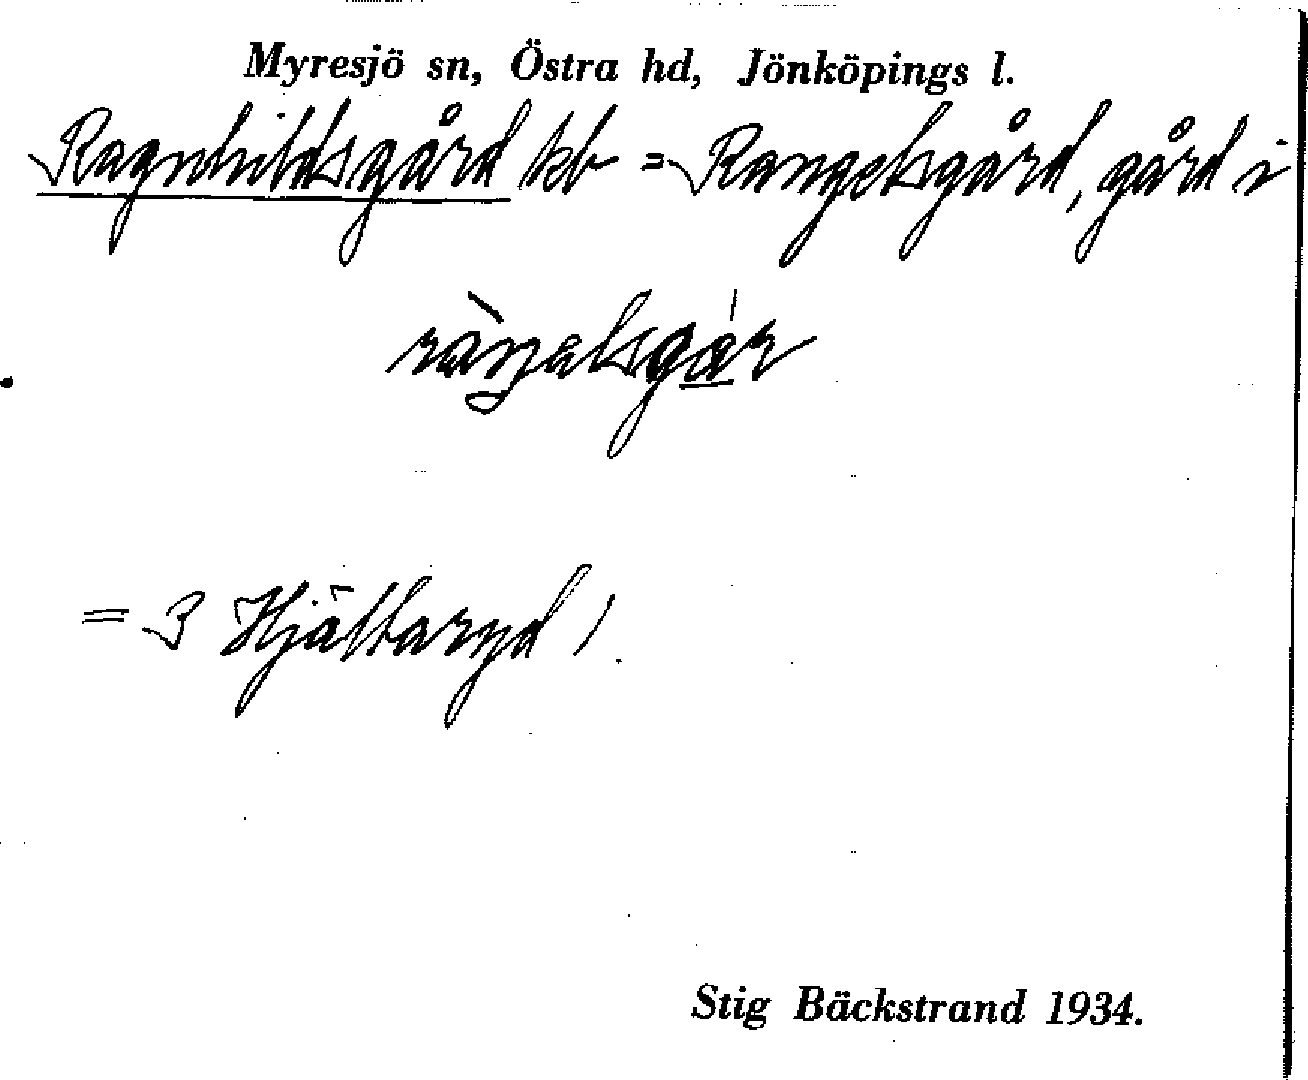 Myresjö sn, Östra hd, Jönköpings l.
Ragnhildsgård kb = Rangelsgård, gård i
= 3 Hjältaryd
Stig Bäckstrand 1934.